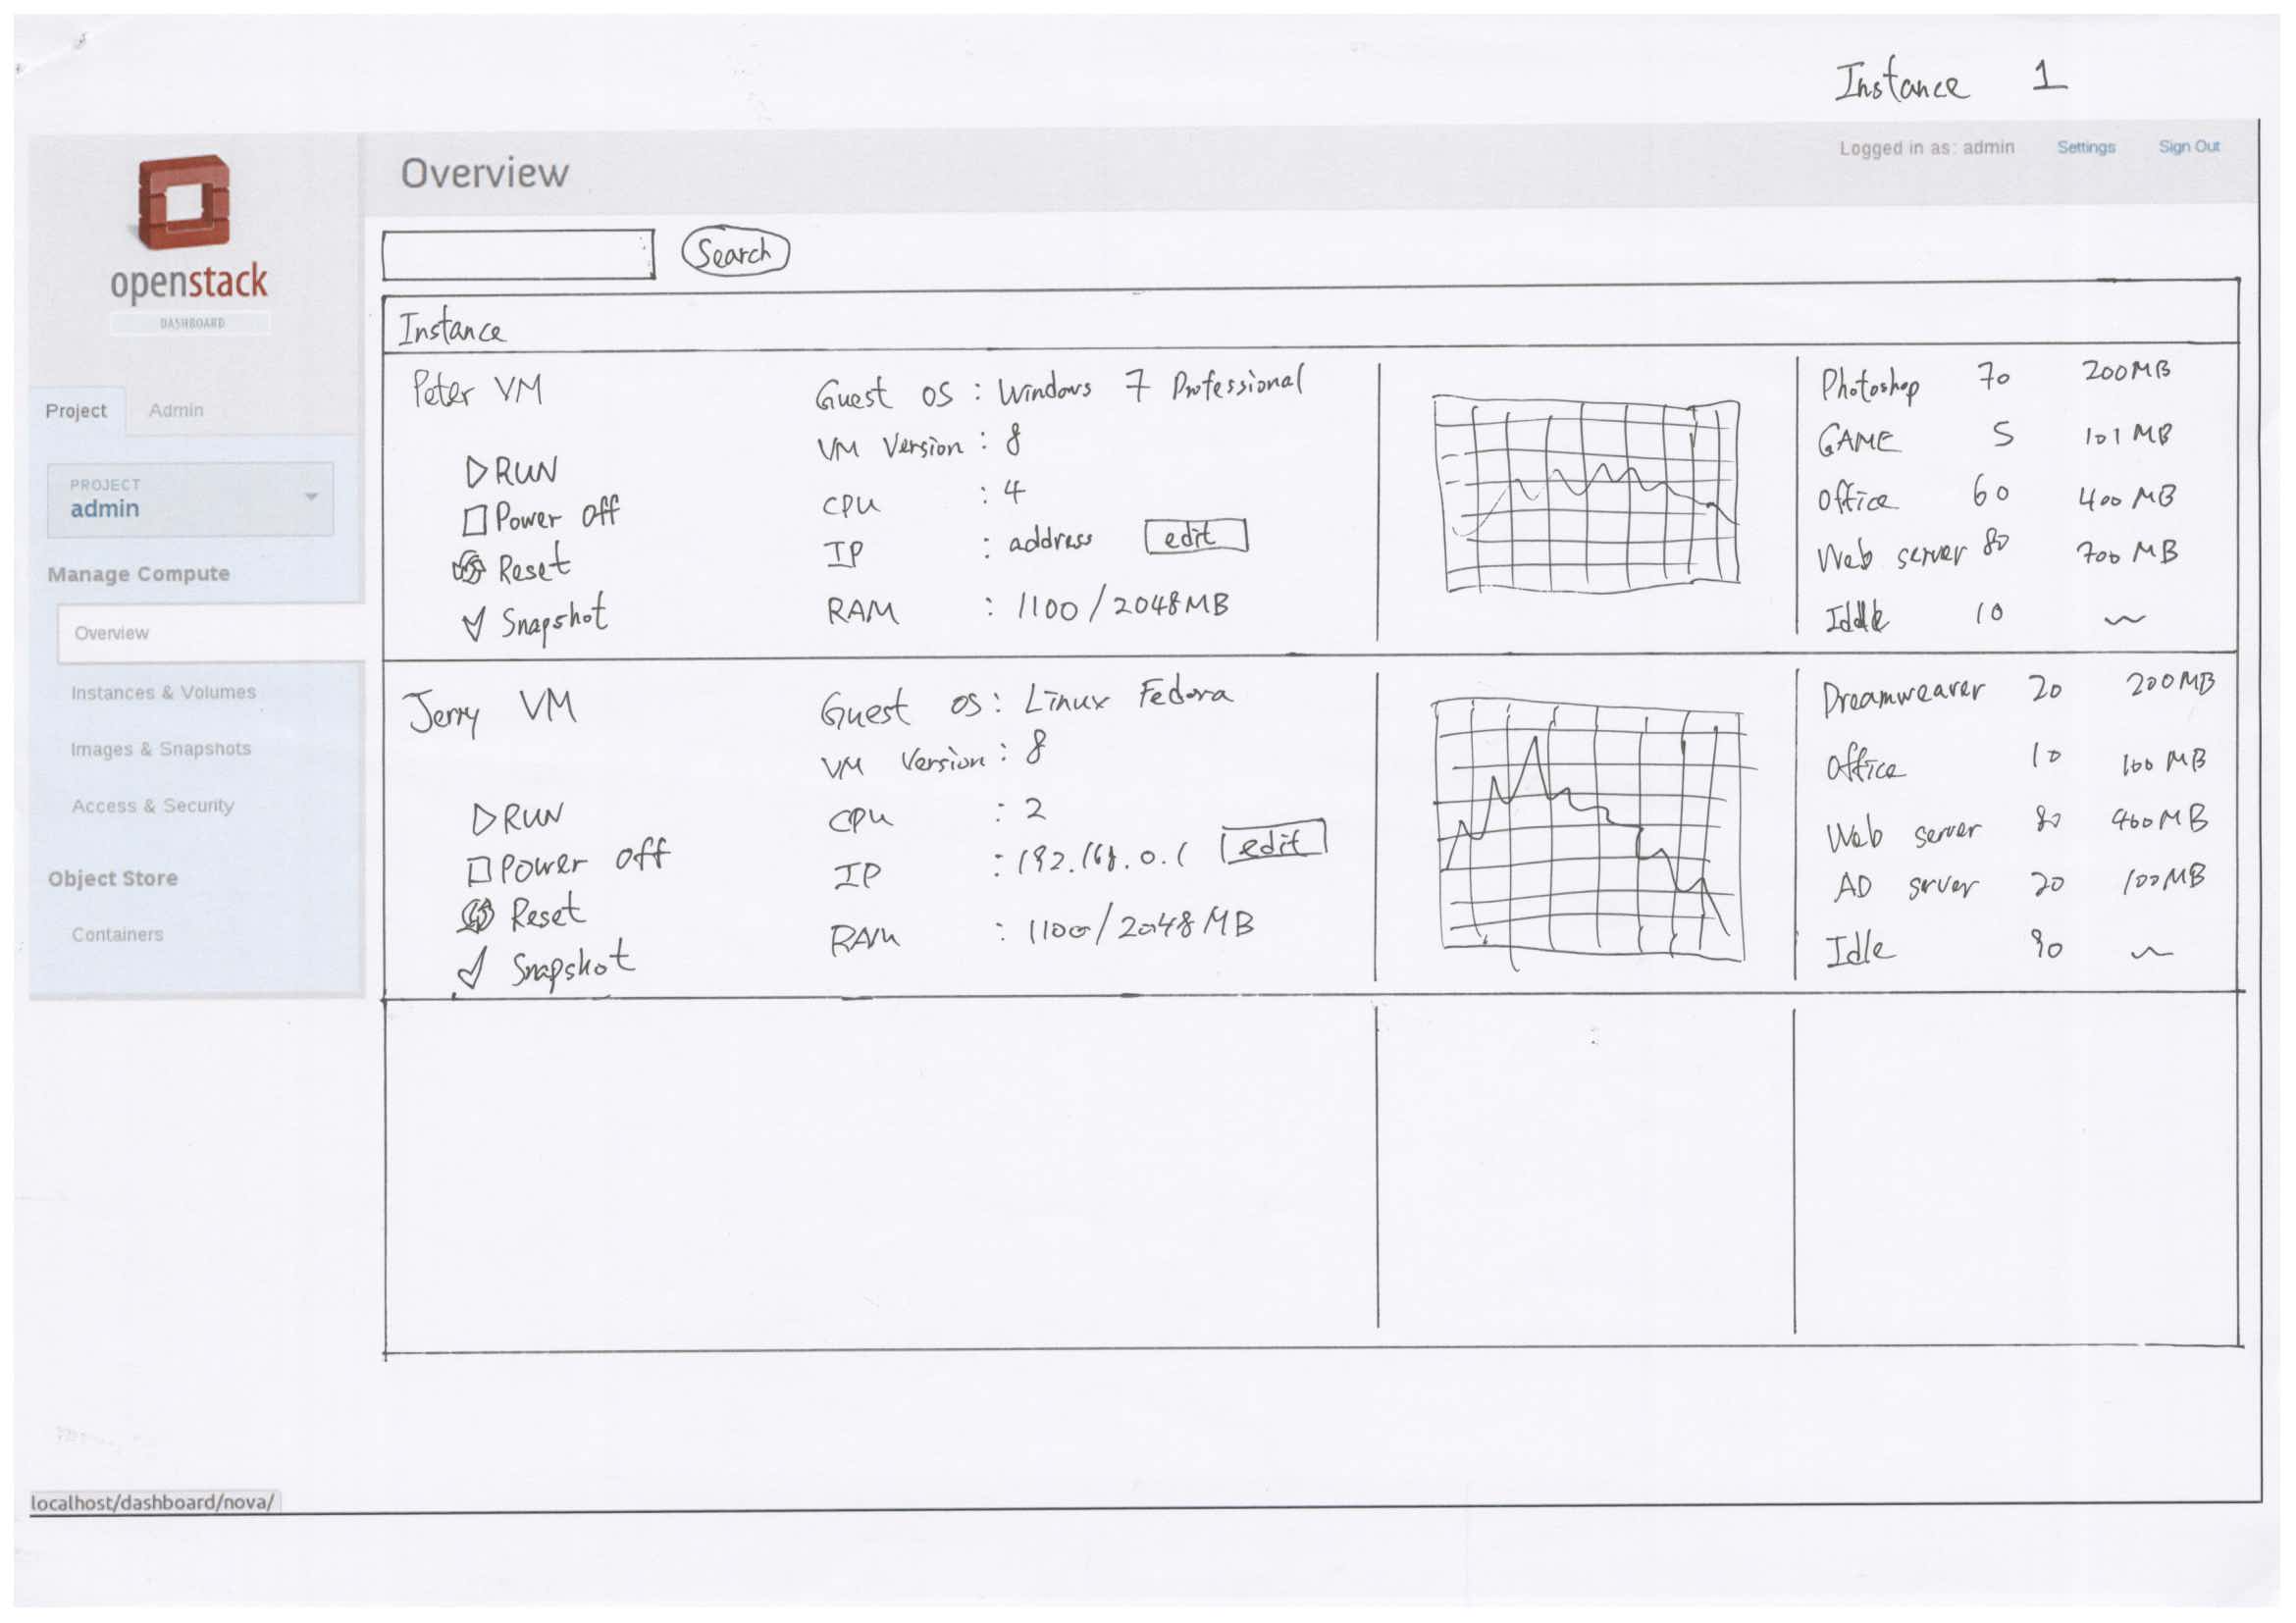 Instance 1
Logged in as: admin Settings Sign Out
Overview
openstack
DASHBOARD
Project Admin
PROJECT
admin
Manage Compute
Overview
Instances & Volumes
Images & Snapshots
Access & Security
Object Store
Containers
Search
Instance
Peter VM
RUN
Power off
Reset
Snapshot
Guest OS : Windows 7 Professional
VM Version : 8
CPU : 4
IP : address edit
RAM : 1100/2048MB
Photoshop 70 200MB
GAME 5 101MB
Office 60 400MB
Web server 80 700MB
Iddle 10
Jerry VM
RUN
Power off
Reset
Snapshot
Guest OS : Linux Fedora
VM Version : 8
CPU : 2
IP : 192.168.0.1 edit
RAM : 1100/2048MB
Dreamweaver 20 200MB
Office 10 100MB
Web server 80 MB
AD srver 20 100MB
Idle 90
localhost/dashboard/nova/